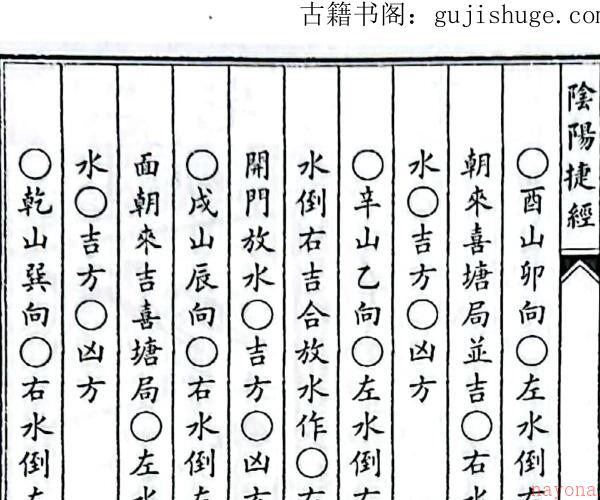 古籍书阁：gujishuge.com
陰陽捷經
○酉山卯向○左水倒
朝來喜塘局並吉○右水
水○吉方○凶方
○辛山乙向○左水倒
水倒右吉合放水作○右
開門放水○吉方○凶方
○戌山辰向○右水倒左
面朝來吉喜塘局○左水
水○吉方○凶方
○乾山巽向○右水倒左
nayona